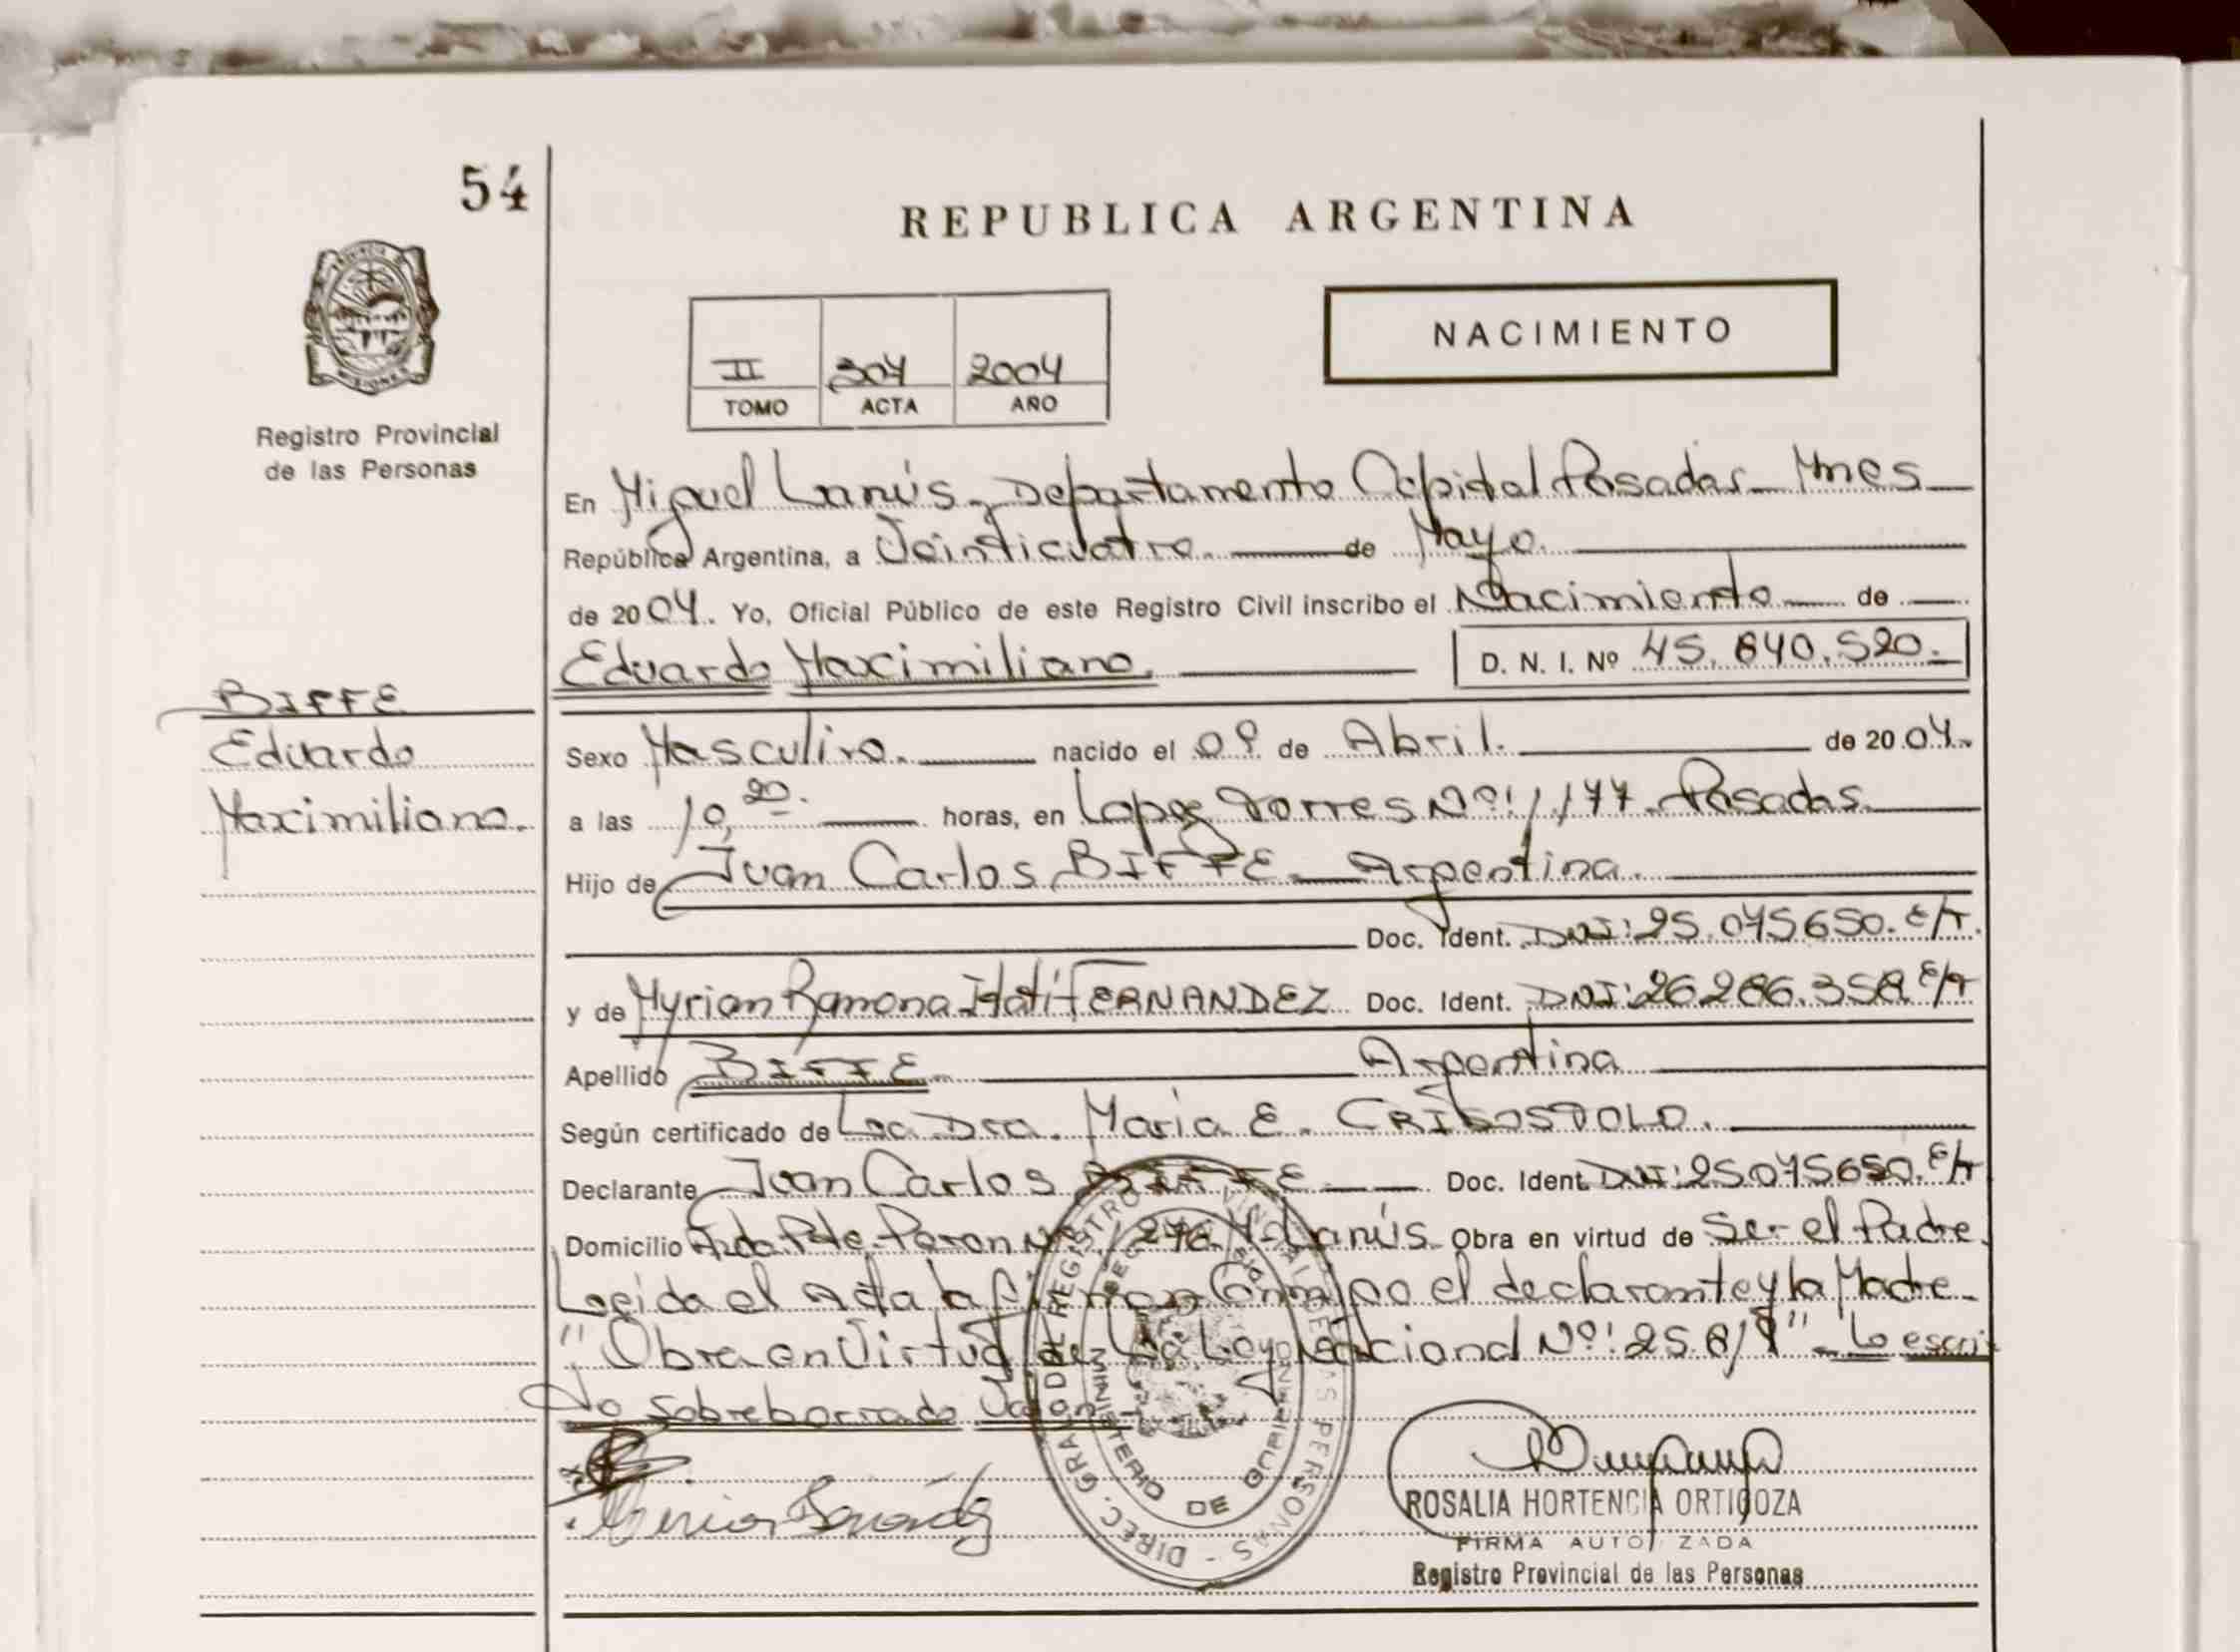 54
REPUBLICA ARGENTINA
NACIMIENTO
II 304 2004
TOMO ACTA AÑO
MISIONES
Registro Provincial
de las Personas
En Miguel Lanús, Departamento Capital Posadas Mnes
República Argentina, a Veinticuatro. de Mayo.
de 2004. Yo, Oficial Público de este Registro Civil inscribo el Nacimiento de
Eduardo Maximiliano. D. N. I. Nº 45.840.520.
BIFFE
Eduardo
Maximiliano.
Sexo Masculino. nacido el 09 de Abril. de 2004.
a las 10,20. horas, en Lopez Torres Nº: 1177. Posadas.
Hijo de Juan Carlos BIFFE Argentina.
Doc. Ident. DNI: 25.075650. E/T.
y de Myrian Ramona Itatí FERNANDEZ Doc. Ident. DNI: 26.286.358. E/T
Apellido BIFFE. Argentina
Según certificado de La Dra. Maria E. CRISOSTOLO.
Declarante Juan Carlos BIFFE Doc. Ident. DNI: 25075650. E/T
Domicilio Avda. Pte. Peron Nº 1276 M. Lanús. Obra en virtud de Ser el Padre.
Leida el Acta la firman Conmigo el declarante y la Madre.
"Obra en Virtud de La Ley Nacional Nº: 25.819" Lo escri
to sobreborrado Vale
DIREC. GRAL. DEL REGISTRO PROVINCIAL DE LAS PERSONAS
MINISTERIO DE GOBIERNO
ROSALIA HORTENCIA ORTIGOZA
FIRMA AUTORIZADA
Registro Provincial de las Personas